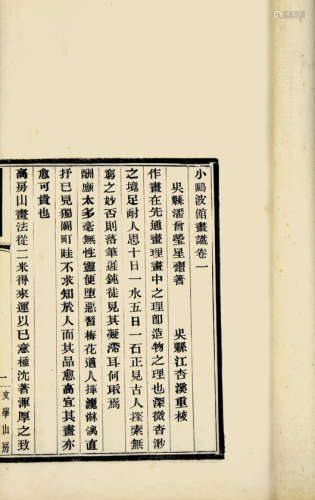 小鷗波館畫識卷一
吳縣潘曾瑩星齋著　吳縣江杏溪重梓
作畫在先通畫理畫中之理卽造物之理也深微杳渺
之境足耐人思十日一水五日一石正見古人探索無
窮之妙否則落筆遲鈍徒見其凝滯耳何取焉
酬應太多毫無性靈便墮惡習梅花道人揮灑淋漓直
抒己見獨闢町畦不求知於人而其品愈高宜其畫亦
愈可貴也
高房山畫法從二米得來運以己意極沈著渾厚之致
一
文學山房